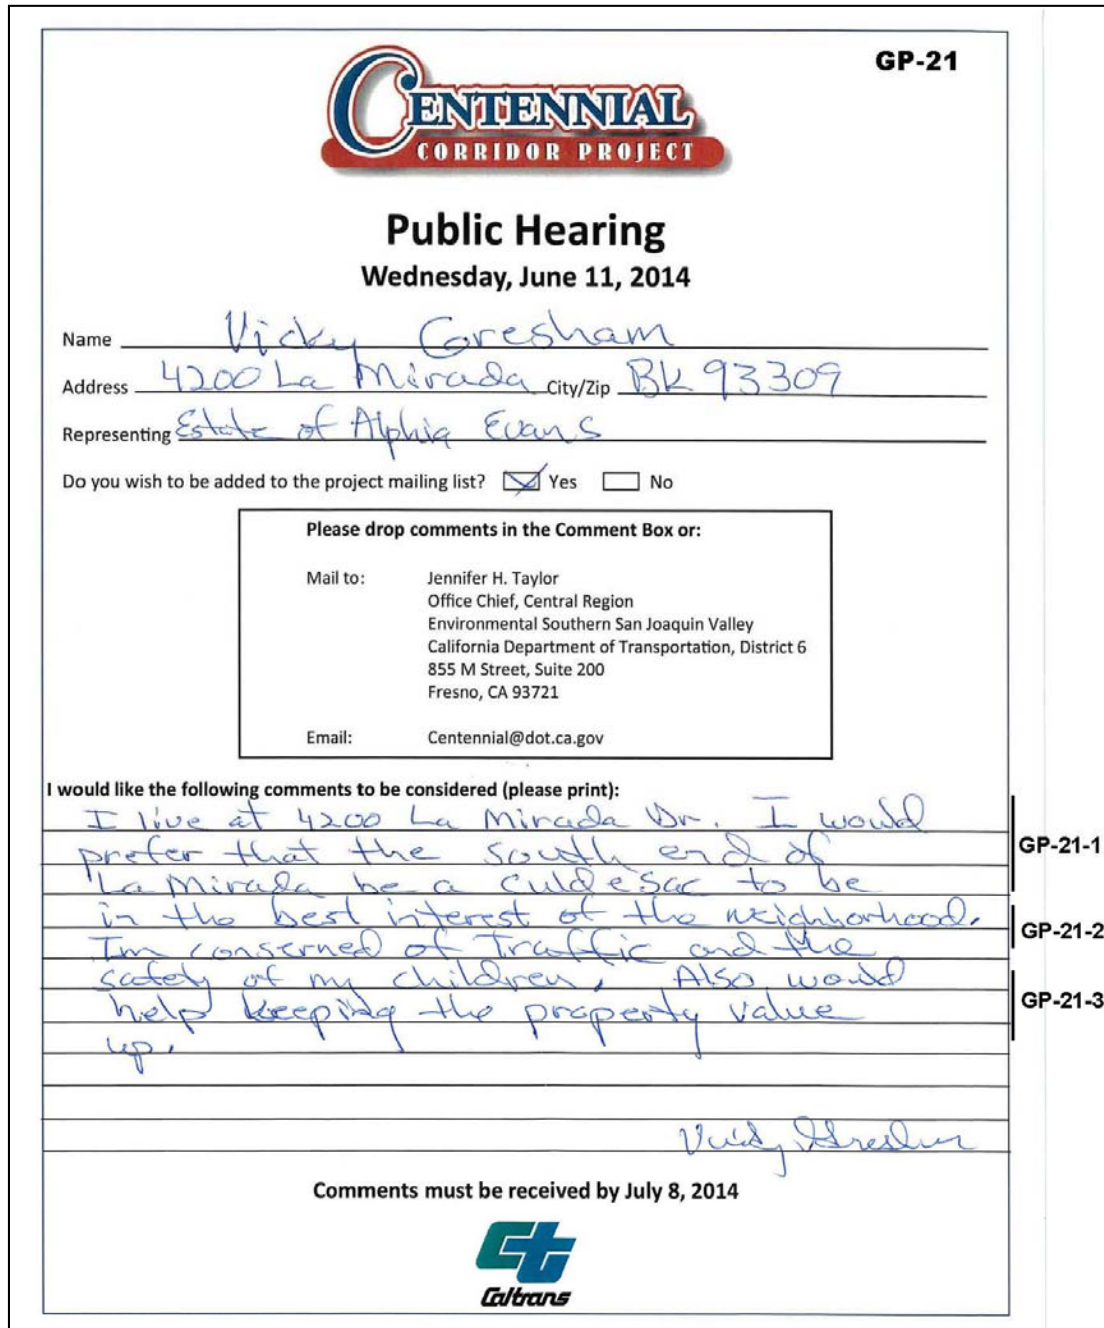 GP-21
CENTENNIAL
CORRIDOR PROJECT
Public Hearing
Wednesday, June 11, 2014
Name Vicky Gresham
Address 4200 La Mirada City/Zip BK 93309
Representing Estate of Alphia Evans
Do you wish to be added to the project mailing list? Yes No
Please drop comments in the Comment Box or:
Mail to: Jennifer H. Taylor
Office Chief, Central Region
Environmental Southern San Joaquin Valley
California Department of Transportation, District 6
855 M Street, Suite 200
Fresno, CA 93721
Email: Centennial@dot.ca.gov
I would like the following comments to be considered (please print):
I live at 4200 La Mirada Dr. I would
prefer that the south end of
GP-21-1
La Mirada be a culdesac to be
in the best interest of the neighborhood.
GP-21-2
Im conserned of Traffic and the
safety of my children, Also would
GP-21-3
help keeping the property value
up.
Vicky Gresham
Comments must be received by July 8, 2014
Caltrans